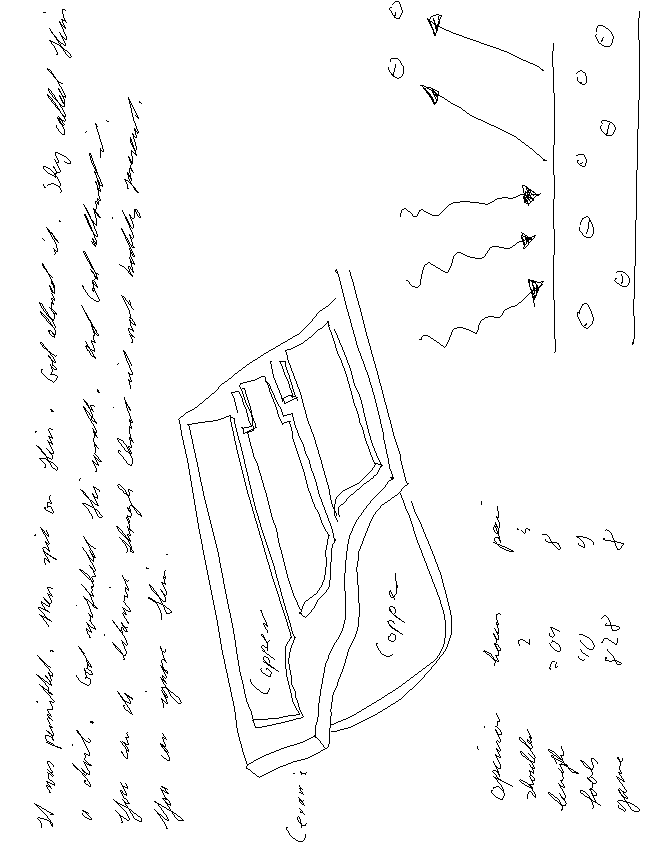 It was permitted. Men spit on Him. God allowed it. They called Him
a devil. God withheld His wrath. and God allowed i
You can do likewise though Christ is not bodily present.
You can ignore Him.
Copper
Coppe
Cerami
opinion hours pai
shoulder 2 3
length 209 8
tools 40 9
game 828 8